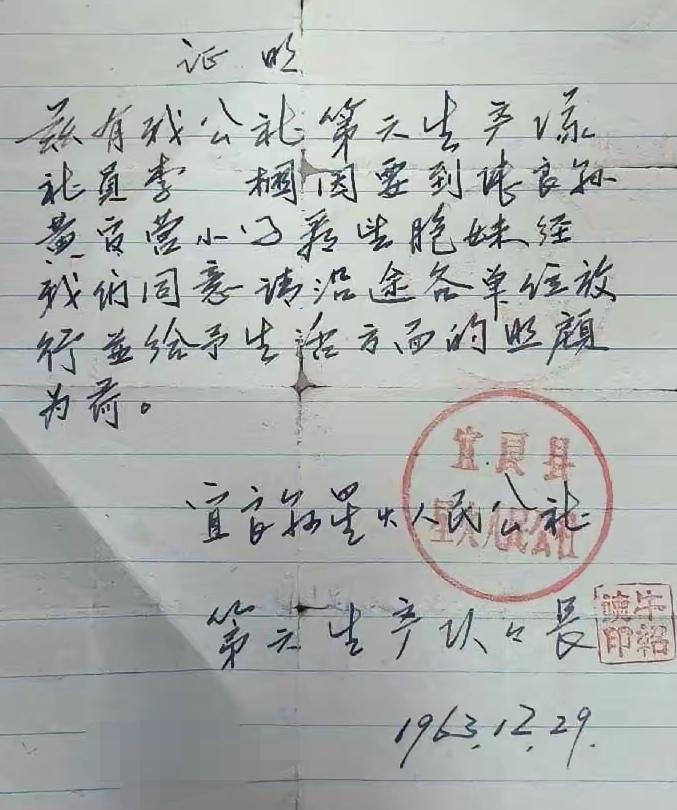 证明
兹有我公社第六生产队
社员李 因要到陆良县
黄官营小 胞妹经
我们同意请沿途各单位放
行並给予生活方面的照顾
为荷。
宜良县
星火人民公社
宜良县星火人民公社
第六生产队々長
牛紹
印
1963.12.29.